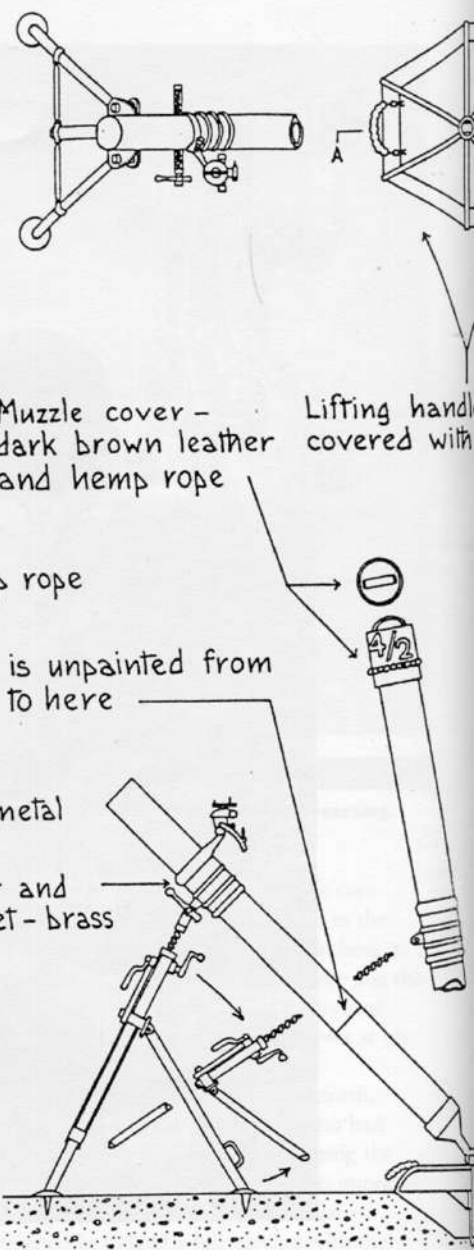 A
Muzzle cover –
dark brown leather
and hemp rope
Lifting handl
covered with
rope
is unpainted from
to here
4/2
metal
and
et – brass